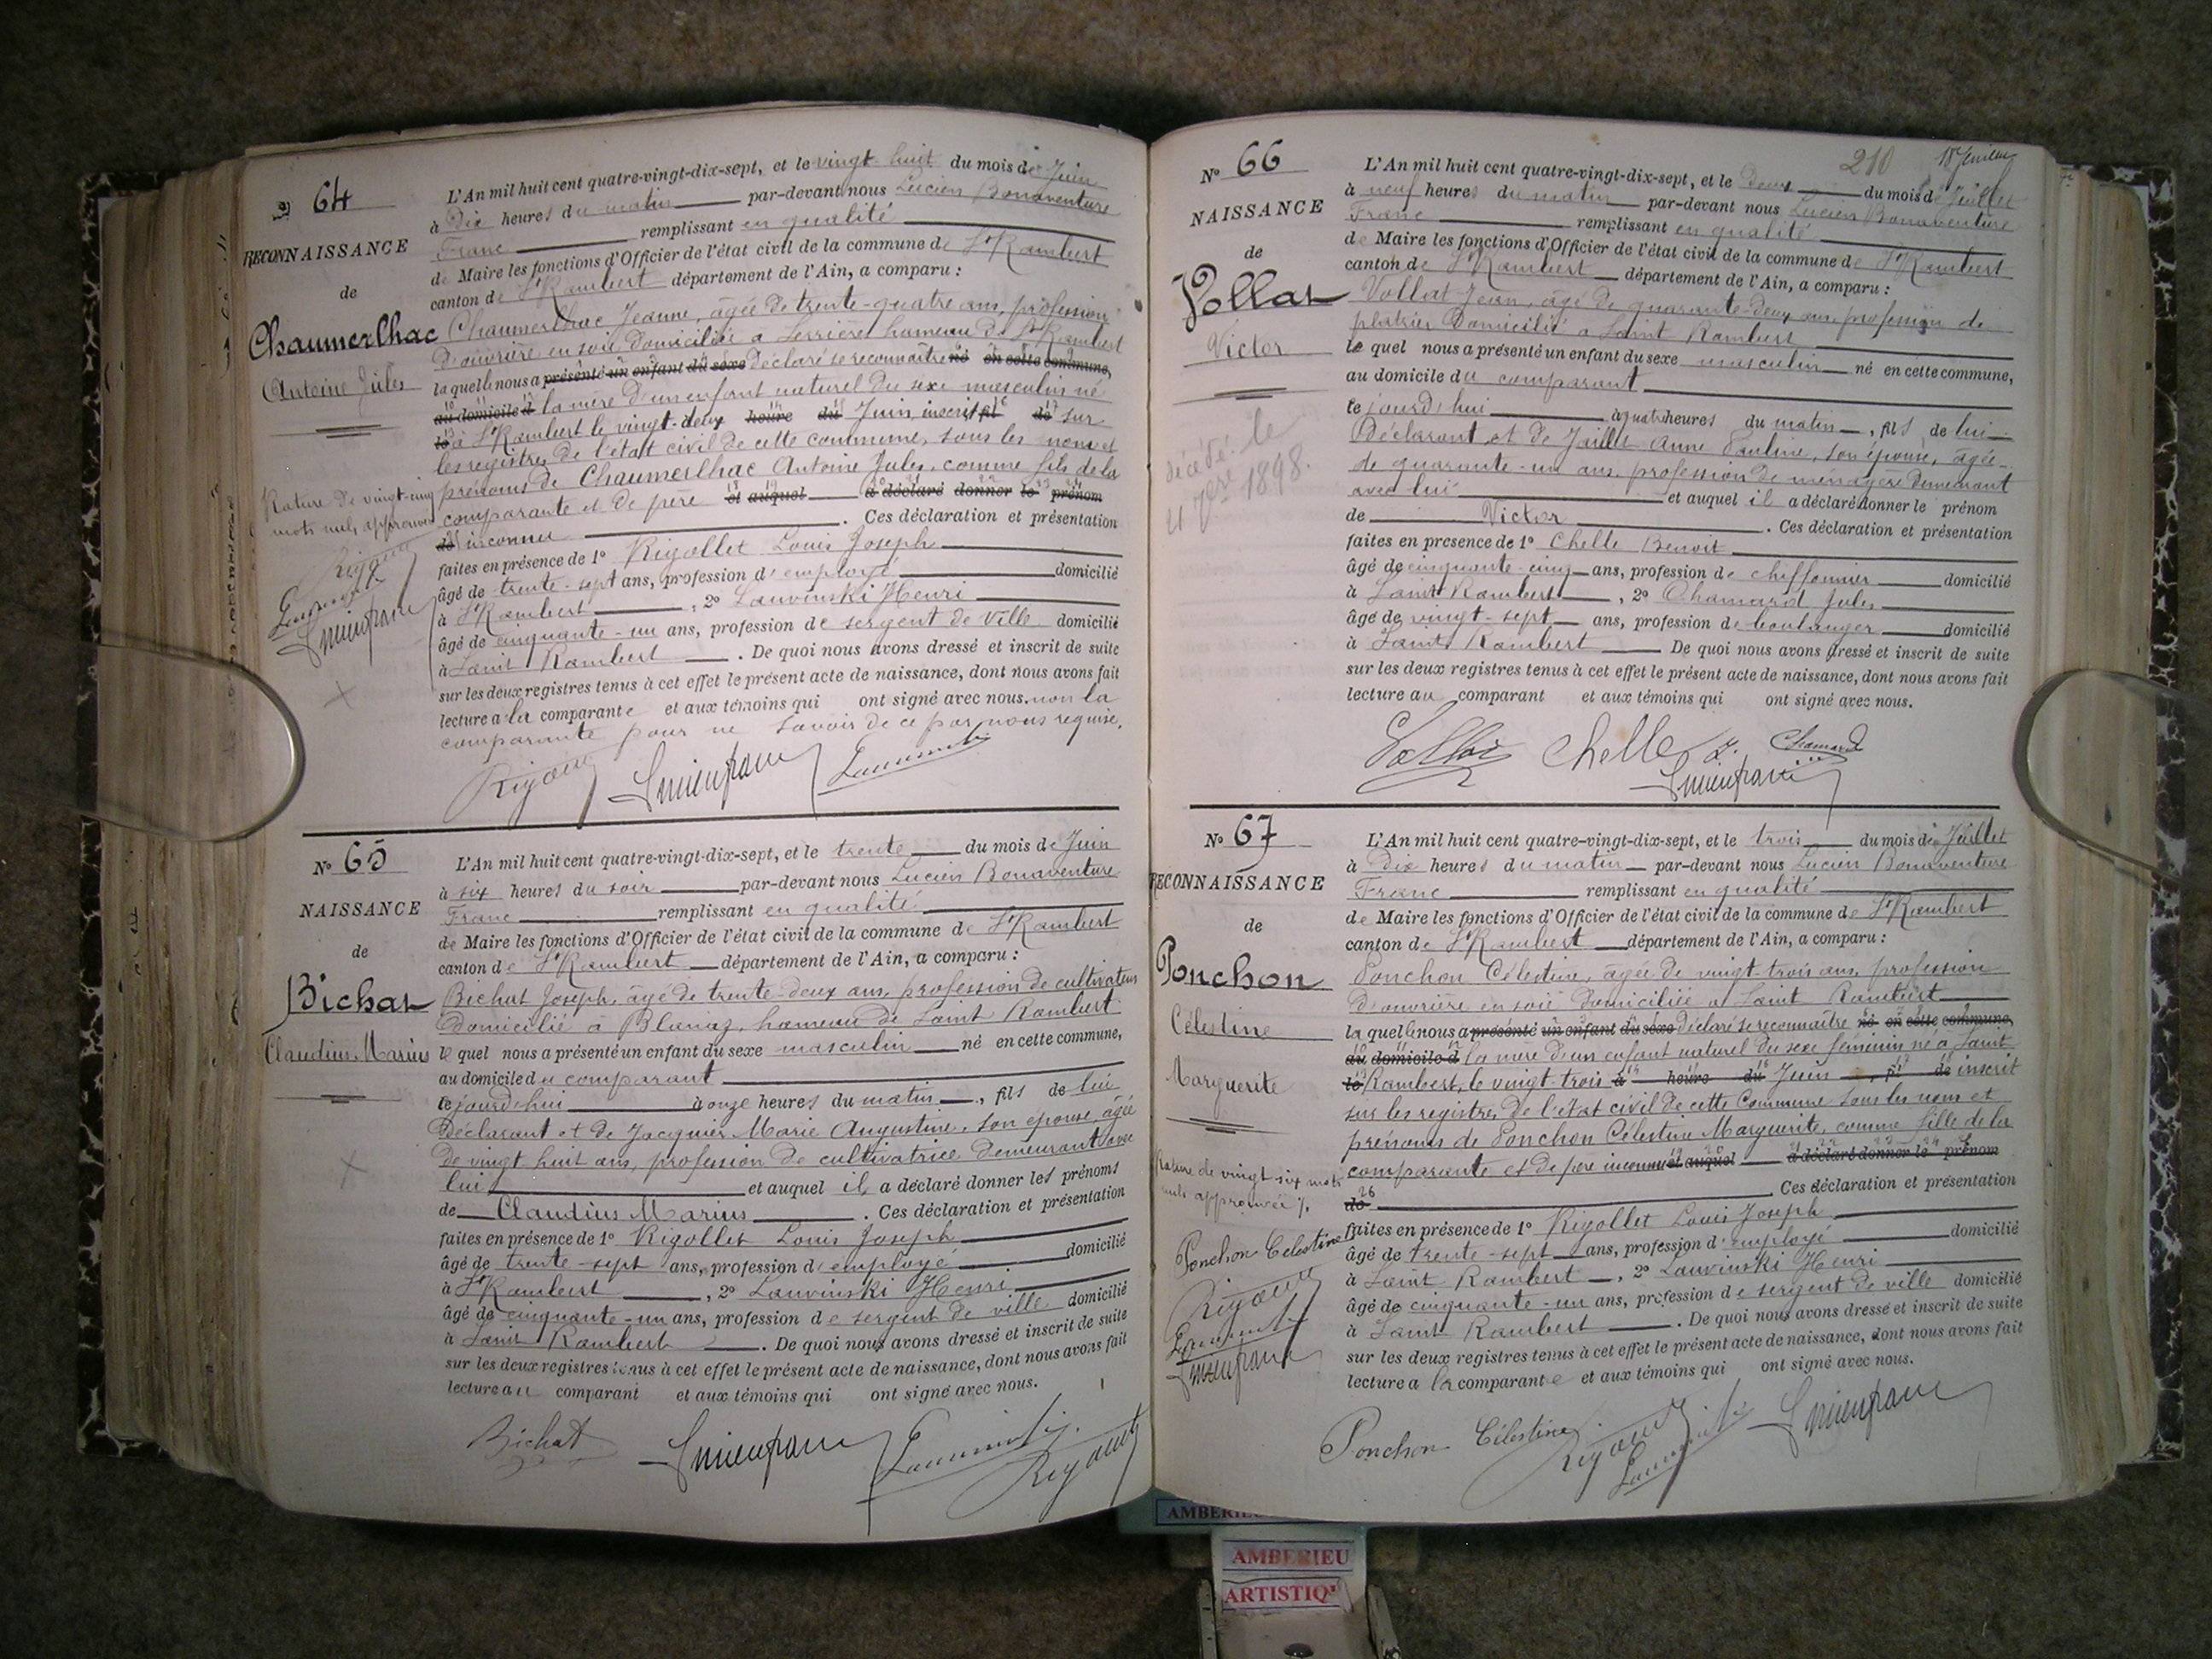 No 64
RECONNAISSANCE
de
Chaumerlhac
Antoine Jules
Rature de vingt-cinq
mots nuls approuvée
L'An mil huit cent quatre-vingt-dix-sept, et le vingt-huit du mois de Juin
à Dix heures du matin par-devant nous Lucien Bonaventure
Franc remplissant en qualité
de Maire les fonctions d'Officier de l'état civil de la commune de St Rambert
canton de St Rambert département de l'Ain, a comparu :
Chaumerlhac Jeanne, âgée de trente-quatre ans, profession
d'ouvrière en soie domiciliée à Serrières hameau de St Rambert
laquelle nous a présenté un enfant du sexe déclaré se reconnaître né en cette commune,
au domicile d la mère d'un enfant naturel du sexe masculin né
le à St Rambert le vingt-deux heure du Juin, inscrit fil de sur
les registres de l'état civil de cette commune, sous les noms et
prénoms de Chaumerlhac Antoine Jules, comme fils de la
comparante et de père et auquel a déclaré donner le prénom
de inconnu . Ces déclaration et présentation
faites en présence de 1o Rigollet Louis Joseph
âgé de trente-sept ans, profession d'employé domicilié
à St Rambert , 2o Lauvinski Henri
âgé de cinquante-un ans, profession de sergent de Ville domicilié
à Saint Rambert . De quoi nous avons dressé et inscrit de suite
sur les deux registres tenus à cet effet le présent acte de naissance, dont nous avons fait
lecture a la comparante et aux témoins qui ont signé avec nous. non la
comparante pour ne savoir de ce par nous requise.
No 65
NAISSANCE
de
Bichat
Claudius Marius
L'An mil huit cent quatre-vingt-dix-sept, et le trente du mois de Juin
à six heures du soir par-devant nous Lucien Bonaventure
Franc remplissant en qualité
de Maire les fonctions d'Officier de l'état civil de la commune de St Rambert
canton de St Rambert département de l'Ain, a comparu :
Bichat Joseph, âgé de trente-deux ans, profession de cultivateur
domicilié à Blanaz, hameau de Saint Rambert
lequel nous a présenté un enfant du sexe masculin né en cette commune,
au domicile du comparant
le jourd'hui à onze heures du matin, fils de lui
Déclarant et de Jacquier Marie Augustine, son épouse, âgée
de vingt huit ans, profession de cultivatrice demeurant avec
lui et auquel il a déclaré donner les prénoms
de Claudius Marius . Ces déclaration et présentation
faites en présence de 1o Rigollet Louis Joseph
âgé de trente-sept ans, profession d'employé domicilié
à St Rambert , 2o Lauvinski Henri
âgé de cinquante-un ans, profession de sergent de ville domicilié
à Saint Rambert . De quoi nous avons dressé et inscrit de suite
sur les deux registres tenus à cet effet le présent acte de naissance, dont nous avons fait
lecture au comparant et aux témoins qui ont signé avec nous.
Bichat
210
No 66
NAISSANCE
de
Vollat
Victor
décédé le
4 7bre 1898.
L'An mil huit cent quatre-vingt-dix-sept, et le Deux du mois de Juillet
à neuf heures du matin par-devant nous Lucien Bonaventure
Franc remplissant en qualité
de Maire les fonctions d'Officier de l'état civil de la commune de St Rambert
canton de St Rambert département de l'Ain, a comparu :
Vollat Jean, âgé de quarante-deux ans, profession de
plâtrier Domicilié à Saint Rambert
lequel nous a présenté un enfant du sexe masculin né en cette commune,
au domicile du comparant
le jourd'hui à quatre heures du matin, fils de lui
Déclarant et de Jaillet Anne Pauline, son épouse, âgée
de quarante-un ans, profession de ménagère demeurant
avec lui et auquel il a déclaré donner le prénom
de Victor . Ces déclaration et présentation
faites en présence de 1o Chelle Benoit
âgé de cinquante-cinq ans, profession de chiffonnier domicilié
à Saint Rambert , 2o Chamard Jules
âgé de vingt-sept ans, profession de boulanger domicilié
à Saint Rambert De quoi nous avons dressé et inscrit de suite
sur les deux registres tenus à cet effet le présent acte de naissance, dont nous avons fait
lecture au comparant et aux témoins qui ont signé avec nous.
Chelle J. Chamard
No 67
RECONNAISSANCE
de
Ponchon
Célestine
Marguerite
Rature de vingt six mots
nuls approuvée
Ponchon Célestine
L'An mil huit cent quatre-vingt-dix-sept, et le trois du mois de Juillet
à Dix heures du matin par-devant nous Lucien Bonaventure
Franc remplissant en qualité
de Maire les fonctions d'Officier de l'état civil de la commune de St Rambert
canton de St Rambert département de l'Ain, a comparu :
Ponchon Célestine, âgée de vingt-trois ans, profession
d'ouvrière en soie domiciliée à Saint Rambert
laquelle nous a présenté un enfant du sexe déclaré se reconnaître né en cette commune,
au domicile d la mère d'un enfant naturel du sexe féminin né à Saint
le Rambert, le vingt-trois à heure du Juin , fil de inscrit
sur les registres de l'état civil de cette Commune sous les noms et
prénoms de Ponchon Célestine Marguerite, comme fille de la
comparante et de père inconnu et auquel a déclaré donner le prénom
de Ces déclaration et présentation
faites en présence de 1o Rigollet Louis Joseph
âgé de trente-sept ans, profession d'employé domicilié
à Saint Rambert , 2o Lauvinski Henri
âgé de cinquante-un ans, profession de sergent de ville domicilié
à Saint Rambert . De quoi nous avons dressé et inscrit de suite
sur les deux registres tenus à cet effet le présent acte de naissance, dont nous avons fait
lecture a la comparante et aux témoins qui ont signé avec nous.
Ponchon Célestine
AMBERIEU
AMBERIEU
ARTISTIQ'